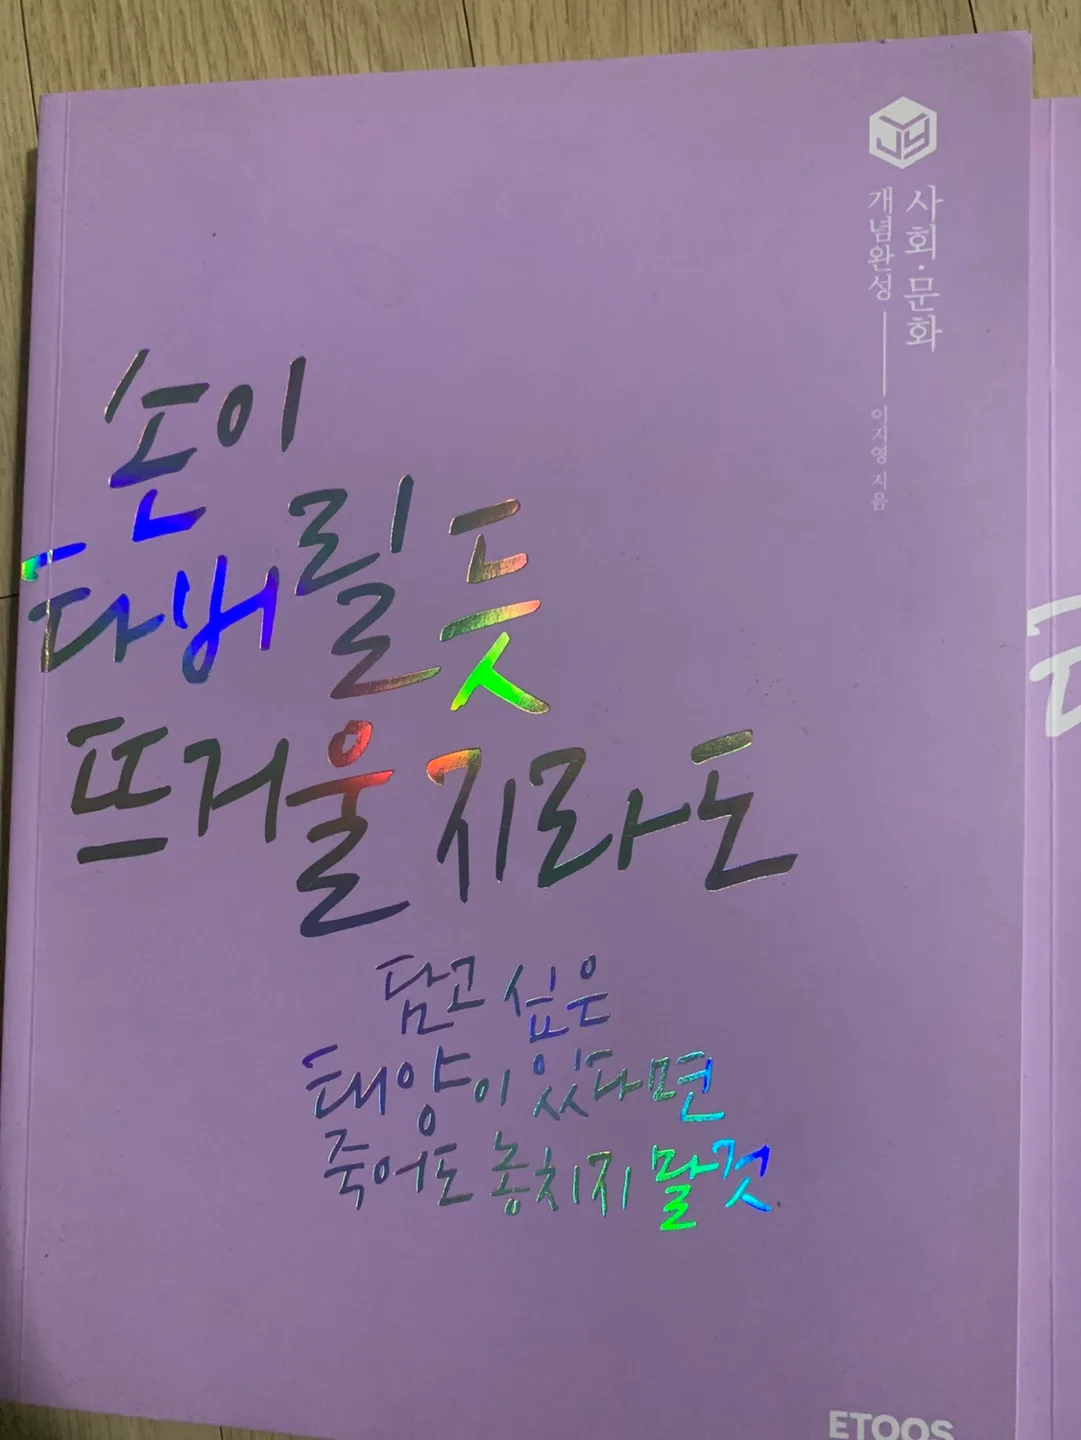 JY
사회·문화
개념완성
이지영 지음
손이
타버릴 듯
뜨거울지라도
담고 싶은
태양이 있다면
죽어도 놓치지 말 것.
ETOOS